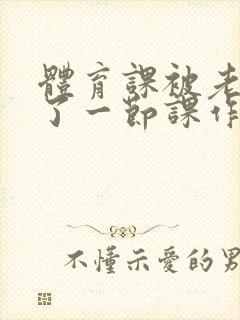 體育課被老
了一節課作
不懂示愛的男